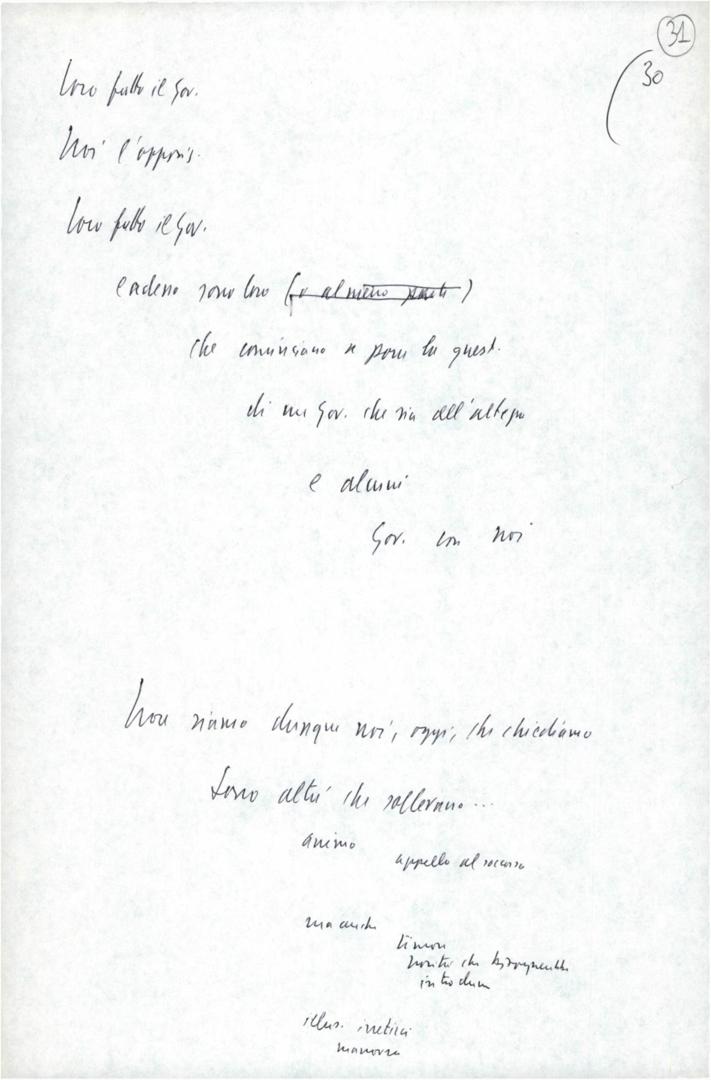 31
30
Loro fatto il Gov.
Noi l'opposiz.
Loro fatto il Gov.
e adesso sono loro (o almeno parte)
che cominciano a porre la quest.
di un Gov. che sia all'altezza
e alcuni
Gov. con noi
Non siamo dunque noi, oggi, che chiediamo
Sono altri che sollevano...
animo
appello al soccorso
ma anche
timori
novità che
introdurre
illus. irretirci
manovra